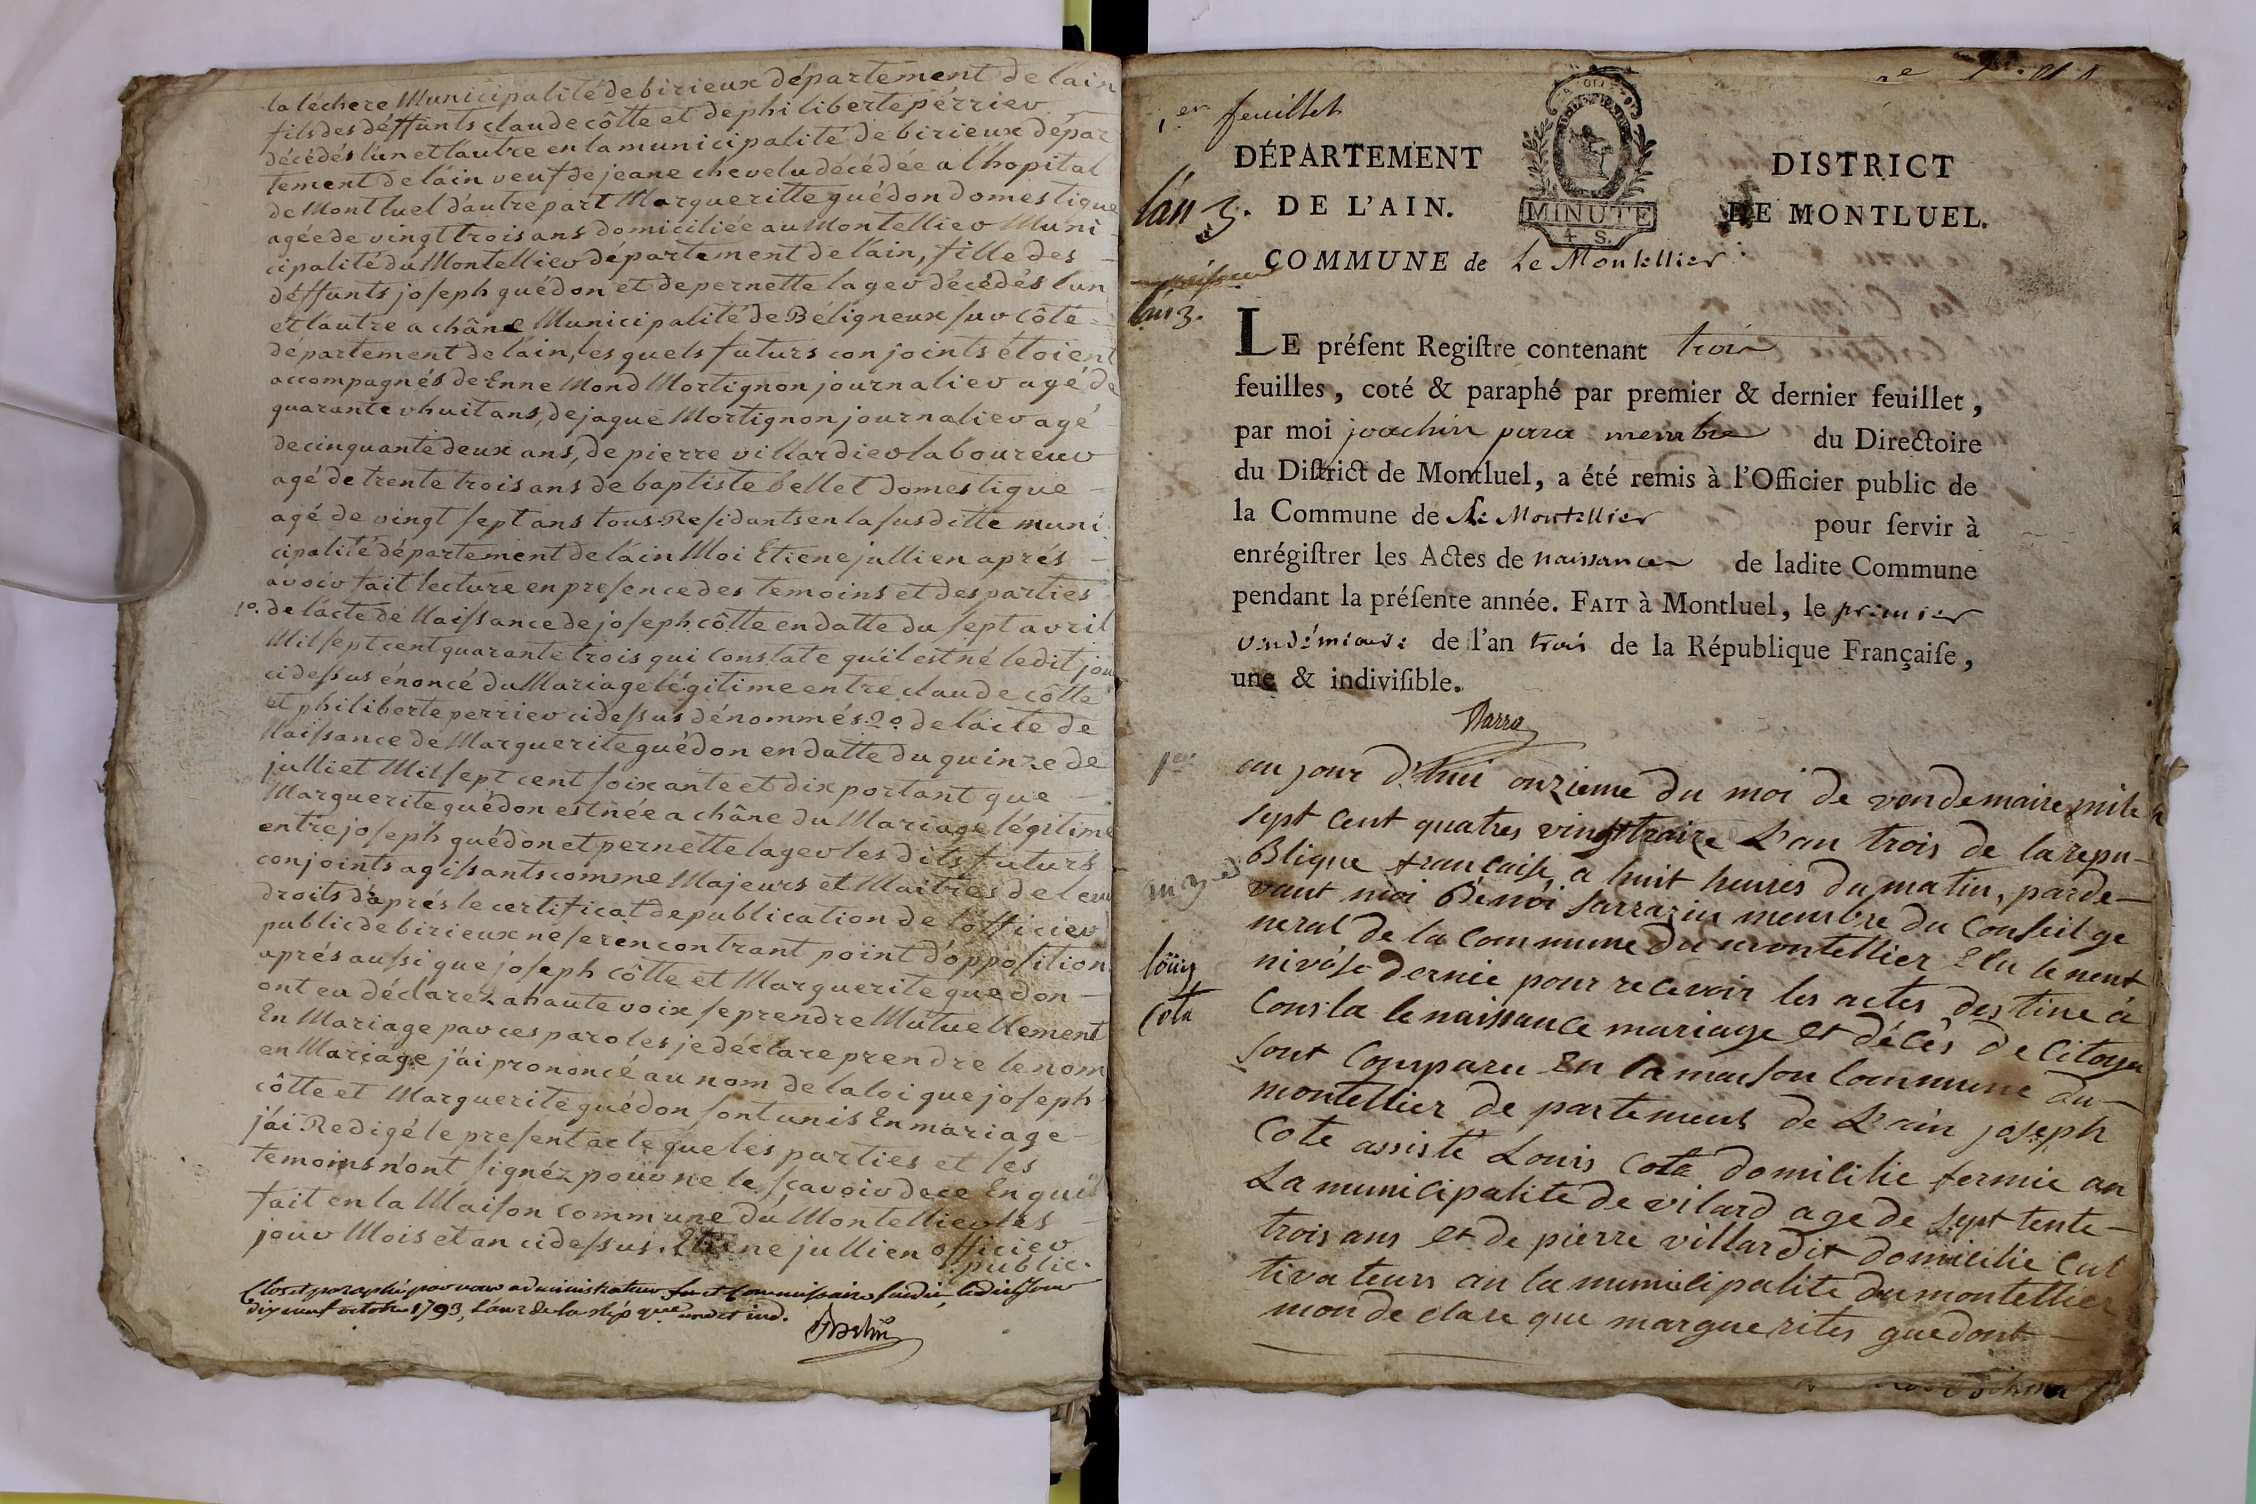 la léchere Municipalité de birieux département de lain
fils des déffunts claude côtte et de philiberte périer
décédés l'un et l'autre en la municipalité de birieux dépar
tement de láin veuf de jeane chevelu décédée a l'hopital
de Montluel d'autre part Margueritte guédon domestique
agée de vingt trois ans domiciliée au Montellier Muni-
cipalité du Montellier département de lain, fille des -
déffunts joseph guédon et de pernette lager décédés lun
et l'autre a châne Municipalité de Béligneux sur côte -
département de láin, les quels futurs conjoints étoient
accompagnés de Ennemond Mortignon journalier agé de
quarante huit ans, de jaque Mortignon journalier agé
de cinquante deux ans, de pierre villardier laboureur
agé de trente trois ans de baptiste bellet domestique -
agé de vingt sept ans tous Residants en la susditte muni
cipalité département de láin Moi Etiene jullien aprés -
avoir fait lecture en presence des temoins et des parties
1o. de l'acte de Naissance de joseph côtte en datte du sept avril
Mil sept cent quarante trois qui constate qu'il est né ledit jour
ci dessus énoncé du Mariage légitime entre claude côtte
et philiberte perrier ci dessus dénommés. 2o. de l'acte de
Naissance de Marguerite guédon en datte du quinze de
julliet Mil sept cent soixante et dix portant que -
Marguerite guédon est née a châne du Mariage légitime
entre joseph guédon et pernette lager les dits futurs
conjoints agissants comme Majeurs et Maitres de leur
droits d'aprés le certificat de publication de l'officier
public de birieux ne se rencontrant point d'opposition
aprés aussi que joseph côtte et Marguerite guedon -
ont eu déclarez a haute voix se prendre Mutuellement
En Mariage par ces paroles je déclare prendre le nom
en Mariage j'ai prononcé au nom de la loi que joseph
côtte et Marguerite guédon sont unis En mariage -
j'ai Redigé le present acte que les parties et les
temoins n'ont signéz pour ne le sçavoir de ce Enquis
fait en la Maison commune du Montellier les -
jour Mois et an ci dessus. Etiene jullien officier
public.
Clos et paraphé par nous administrateur
dix neuf octobre 1793, l'an 2 de la rép que une et ind.
1er feuillet
DÉPARTEMENT
DE L'AIN.
MINUTE
4 S.
DISTRICT
DE MONTLUEL.
l'an 3.
COMMUNE de Le Montellier
l'an 3.
LE préſent Regiſtre contenant trois
feuilles, coté & paraphé par premier & dernier feuillet,
par moi joachin para membre du Directoire
du Diſtrict de Montluel, a été remis à l'Officier public de
la Commune de Le Montellier pour ſervir à
enrégiſtrer les Actes de naissances de ladite Commune
pendant la préſente année. FAIT à Montluel, le premier
vendémiaire de l'an trois de la République Françaiſe,
une & indiviſible.
1er
au jour d'hui onzieme du moi de vendemaire mile
sept cent quatres vingttraize L'an trois de la repu-
Blique francaise, a huit heures du matin, parde-
vant moi Bénoi Sarrazin membre du Conseil ge
neral de la Commune du montellier Elu le
nivôse dernie pour recevoir les actes destine á
Consta le naissance mariage et décés de Citoyen
sont Comparu En la maison Commune du-
montellier de partement de L'ain joseph
Cote assisté Louis Cote domicilie fermie an
La municipalite de vilard age de sept tente-
trois ans et de pierre villardit domicilie Cul
tivateurs an la municipalite du montellier
mon declare que marguerites guedont
loüis
Cota